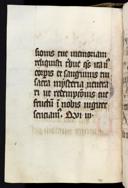 sionis tue memoriam
reliquisti tribue qs ita nos
corporis et sanguinis tui
sacra mysteria venera
ri ut redemptionis tue
fructū ĩ nobis iugiter
sentiam. Qui vi